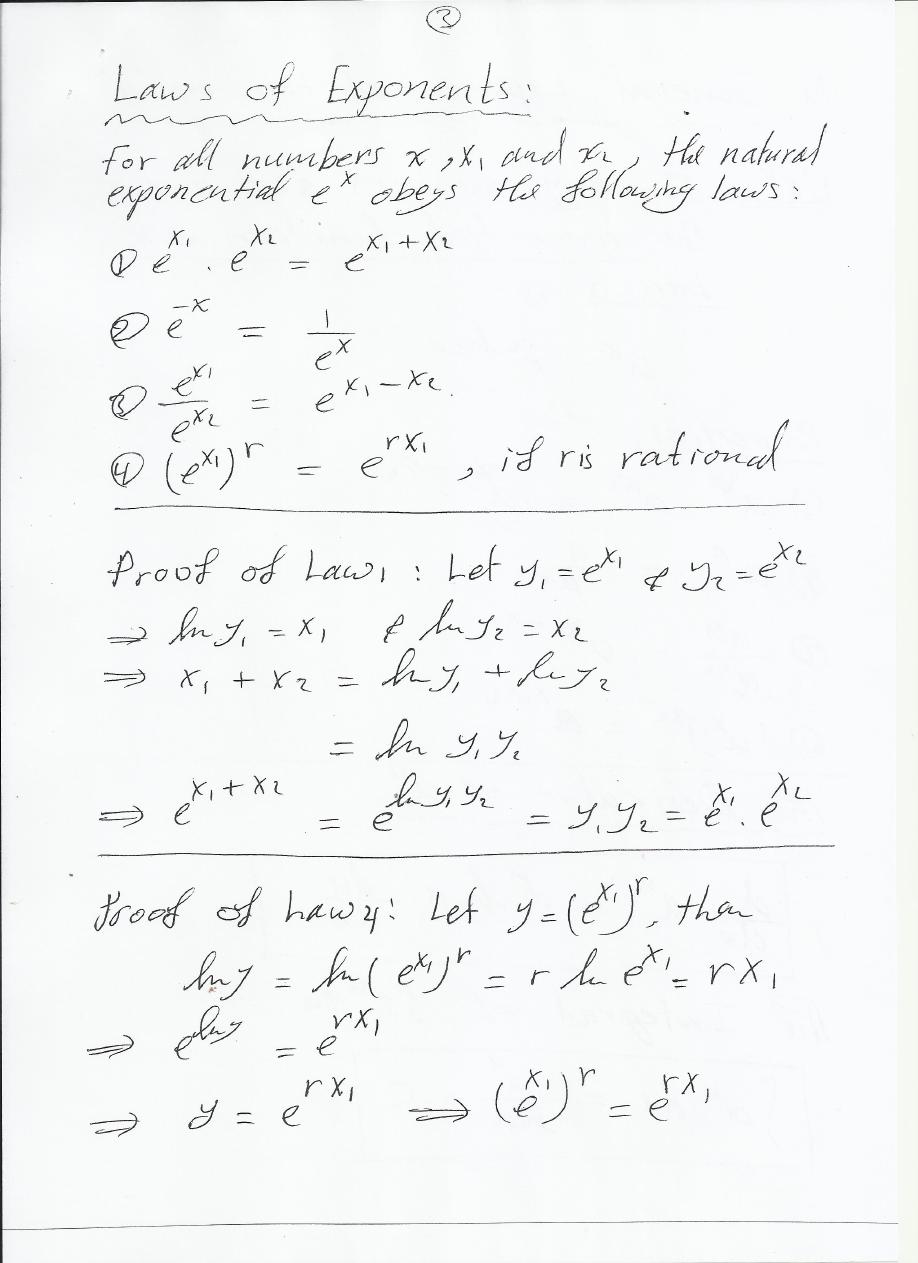 ③
Laws of Exponents:
For all numbers x, x₁ and x₂, the natural
exponential eˣ obeys the following laws:
① e^x₁ . e^x₂ = e^(x₁+x₂)
② e^-x = 1/e^x
③ e^x₁/e^x₂ = e^(x₁-x₂).
④ (e^x₁)^r = e^(rx₁), if r is rational
Proof of Law 1: Let y₁ = e^x₁ & y₂ = e^x₂
⇒ ln y₁ = x₁ & ln y₂ = x₂
⇒ x₁ + x₂ = ln y₁ + ln y₂
= ln y₁ y₂
⇒ e^(x₁+x₂) = e^(ln y₁ y₂) = y₁ y₂ = e^x₁ . e^x₂
Proof of Law 4: Let y = (e^x₁)^r, then
ln y = ln(e^x₁)^r = r ln e^x₁ = r x₁
⇒ e^(ln y) = e^(rx₁)
⇒ y = e^(rx₁) ⇒ (e^x₁)^r = e^(rx₁)